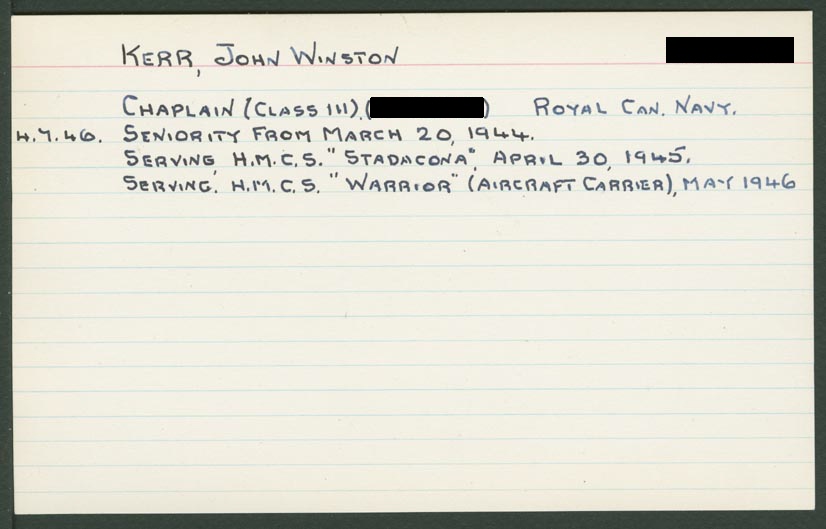 KERR, JOHN WINSTON
CHAPLAIN (CLASS III), ( ) ROYAL CAN. NAVY.
4.7.46. SENIORITY FROM MARCH 20, 1944.
SERVING, H.M.C.S. "STADACONA", APRIL 30, 1945.
SERVING, H.M.C.S. "WARRIOR" (AIRCRAFT CARRIER), MAY 1946